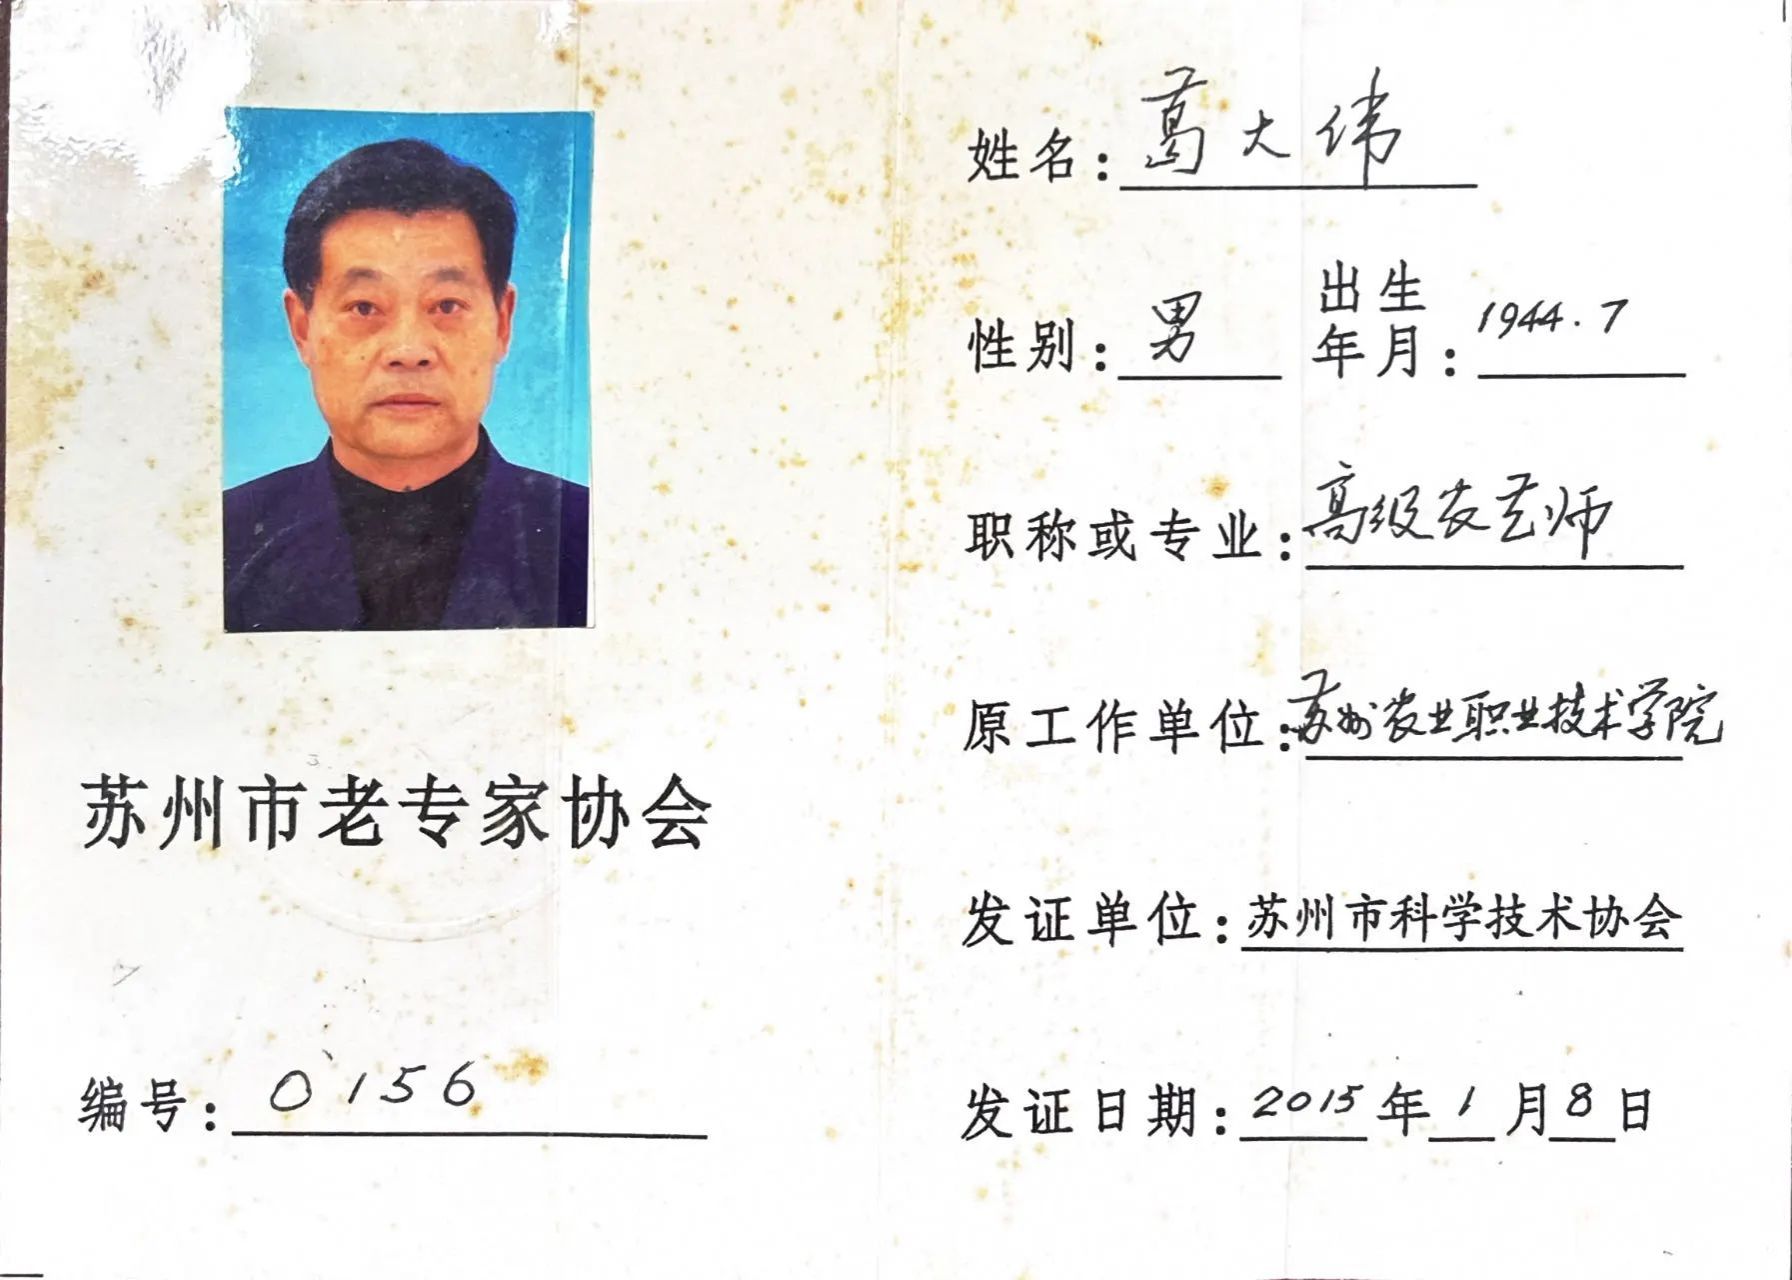 苏州市老专家协会
编号：0156
姓名：葛大伟
性别：男 出生年月：1944.7
职称或专业：高级农艺师
原工作单位：苏州农业职业技术学院
发证单位：苏州市科学技术协会
发证日期：2015年1月8日